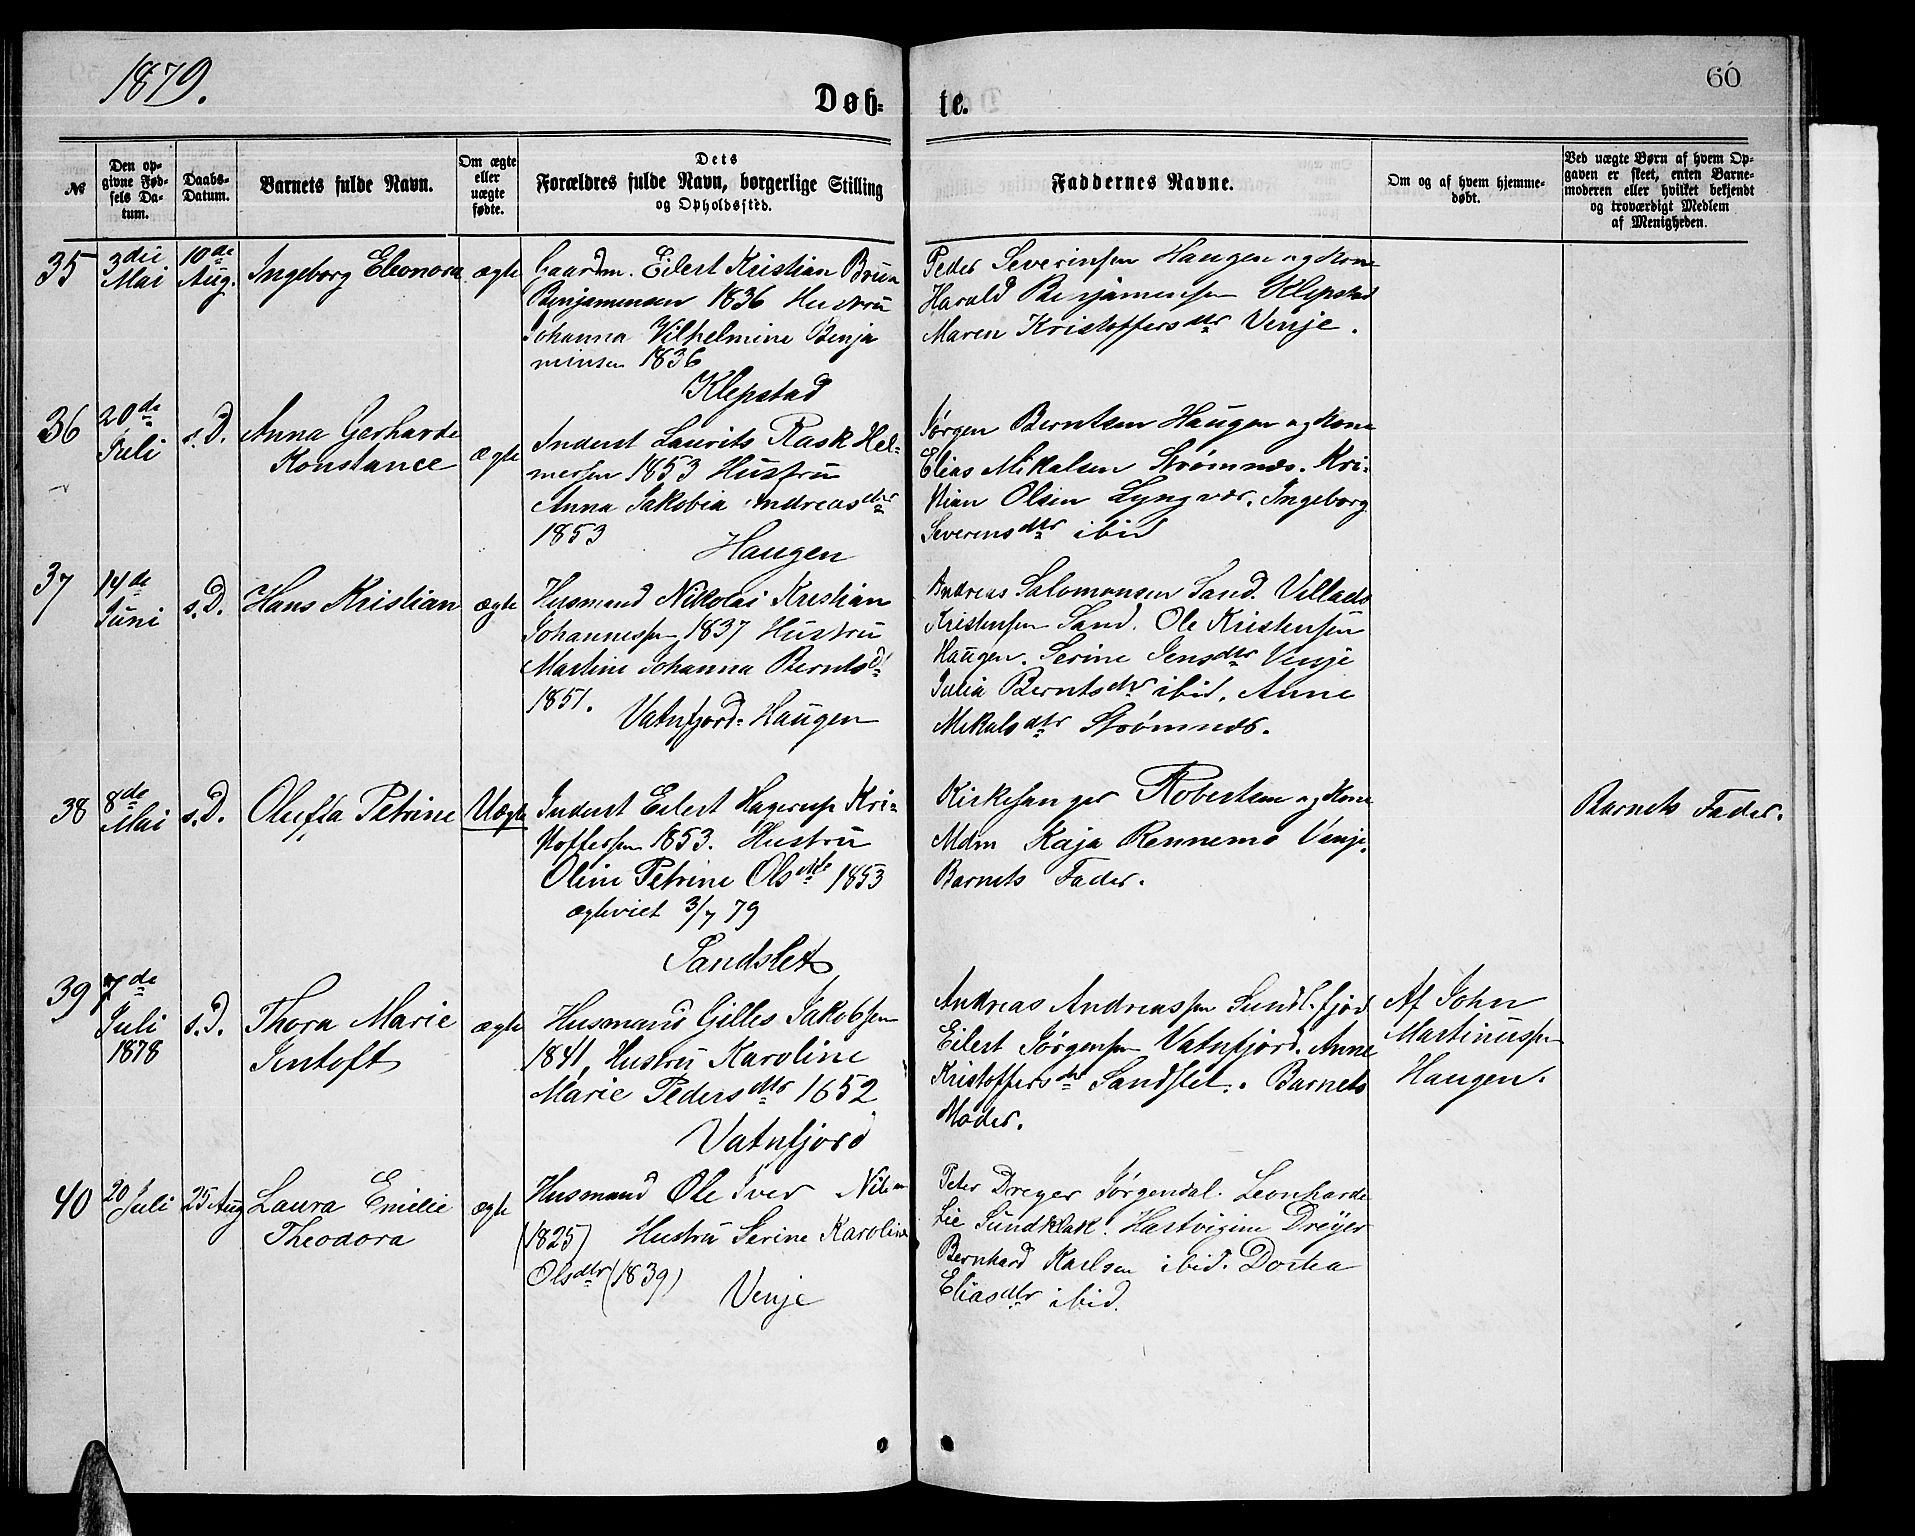 1879.
60
Døb=
te.
№
Den op-
givne Fød-
sels Da-
tum.
Daabs-
Datum.
Barnets fulde Navn.
Om ægte
eller
uægte
fødte.
Dets
Forældres fulde Navn, borgerlige Stilling
og Opholdssted.
Faddernes Navne.
Om og af hvem hjemme-
døbt.
Ved uægte Børn af hvem Op-
gaven er skeet, enten Barne-
moderen eller hvilket bekjendt
og troværdigt Medlem
af Menigheden.
35
3die
Mai
10de
Aug.
Ingeborg Eleonora
ægte
Gaardm. Eilert Kristian Brun
Benjamensen 1836 Hustru
Johanna Vilhelmine Benja
minsen 1836
Klepstad
Peder Severinsen Haugen og Kone
Harald Benjamensen Klepstad
Maren Kristoffersdtr Venje.
36
20de
Juli
s.D.
Anna Gerharde
Konstance
ægte
Inderst Laurits Rask Hel-
mersen 1853 Hustru
Anna Jakobia Andreasdtr
1853
Haugen
Jørgen Berntsen Haugen og Kone
Elias Mikalsen Strømnæs. Kri-
stian Olsen Lyngvær. Ingeborg
Severensdtr ibid
37
14de
Juni
s.D.
Hans Kristian
ægte
Husmand Nikolai Kristian
Johannessen 1837 Hustru
Martine Johanna Berntsd
1851.
Vatnfjord-Haugen
Andreas Salomonsen Sand. Villads
Kristensen Sand. Ole Kristensen
Haugen. Serine Jensdtr Venje
Julia Berntsdtr ibid. Anne
Mikalsdtr Strømnæs.
38
8de
Mai
s.D.
Oluffa Petrine
Uægte
Inderst Eilert Hagerup Kri-
stoffersen 1853. Hustru
Oline Petrine Olsdtr 1853
ægteviet 3/7 79
Sandslet
Kirkesanger Robertsen og Kone
Mdm Kaja Rennemo Venje.
Barnets Fader.
Barnets Fader.
39
7de
Juli
1878
s.D.
Thora Marie
Jentoft
ægte
Husmand Gilles Jakobsen
1841, Hustru Karoline
Marie Pedersdtr 1652
Vatnfjord
Andreas Andreassen Sundl.fjord
Eilert Jørgensen Vatnfjord. Anne
Kristoffersdtr Sandslet. Barnets
Moder.
Af John
Martinussen
Haugen.
40
20
Juli
25 Aug
Laura Emelie
Theodora
ægte
Husmand Ole Iver Nilsen
(1825) Hustru Serine Karoline
Olsdtr (1839)
Venje
Peter Dreyer Jørgendal. Leonharde
Lie Sundklak. Hartvigine Dreyer
Bernhard Karlsen ibid. Dortea
Eliasdtr ibid.